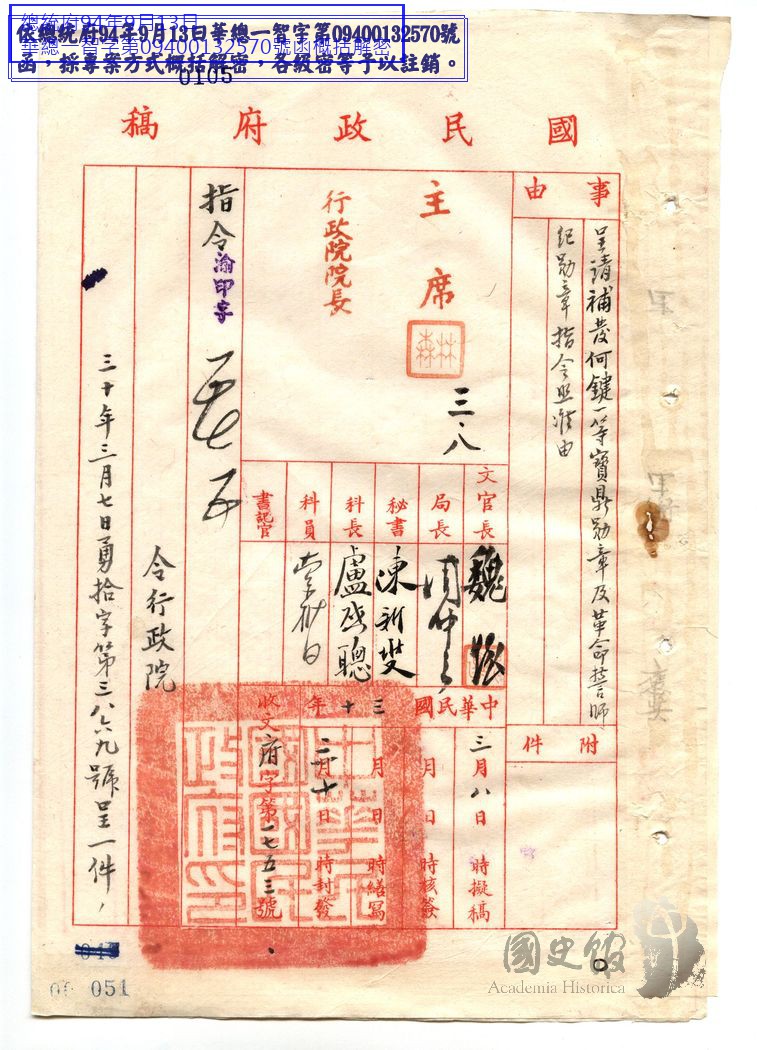 總統府94年9月13日
華總一智字第09400132570號函概括解密
依總統府94年9月13日華總一智字第09400132570號
函，採專案方式概括解密，各級密等予以註銷。
0105
國民政府稿
事由
呈請補發何鍵一等寶鼎勛章及革命誓師
紀勛章指令照准由
附件
主席
林森
三、八
行政院院長
文官長
魏
局長
秘書
陳
科長
盧
聰
科員
書記官
中華民國三十年
三月八日 時擬稿
月 日 時核簽
月 日 時繕寫
三月十日 時封發
收文府字第一七五三號
中華民國國民政府印
指令
渝印字
令行政院
三十年三月七日勇拾字第三八六九號呈一件，
051
國史館
Academia Historica